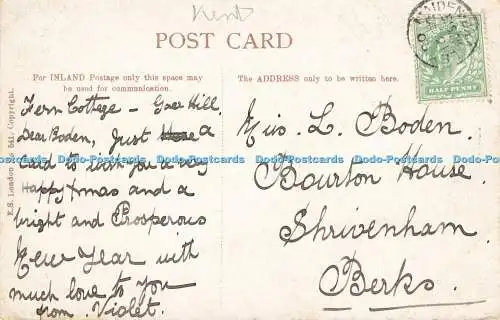 Kent
POST CARD
For INLAND Postage only this space may
be used for communication.
The ADDRESS only to be written here.
HALF PENNY
Fern Cottage - Goer Hill.
Dear Boden, Just a
card to wish you a very
Happy Xmas and a
bright and Prosperous
New Year with
much love to you
from Violet.
Miss L. Boden.
Bourton House.
Shrivenham
Berks.
E.S. London Copyright.
Dodo-Postcards Dodo-Postcards Dodo-Postcards Dodo-Postcards Dodo-Postcards